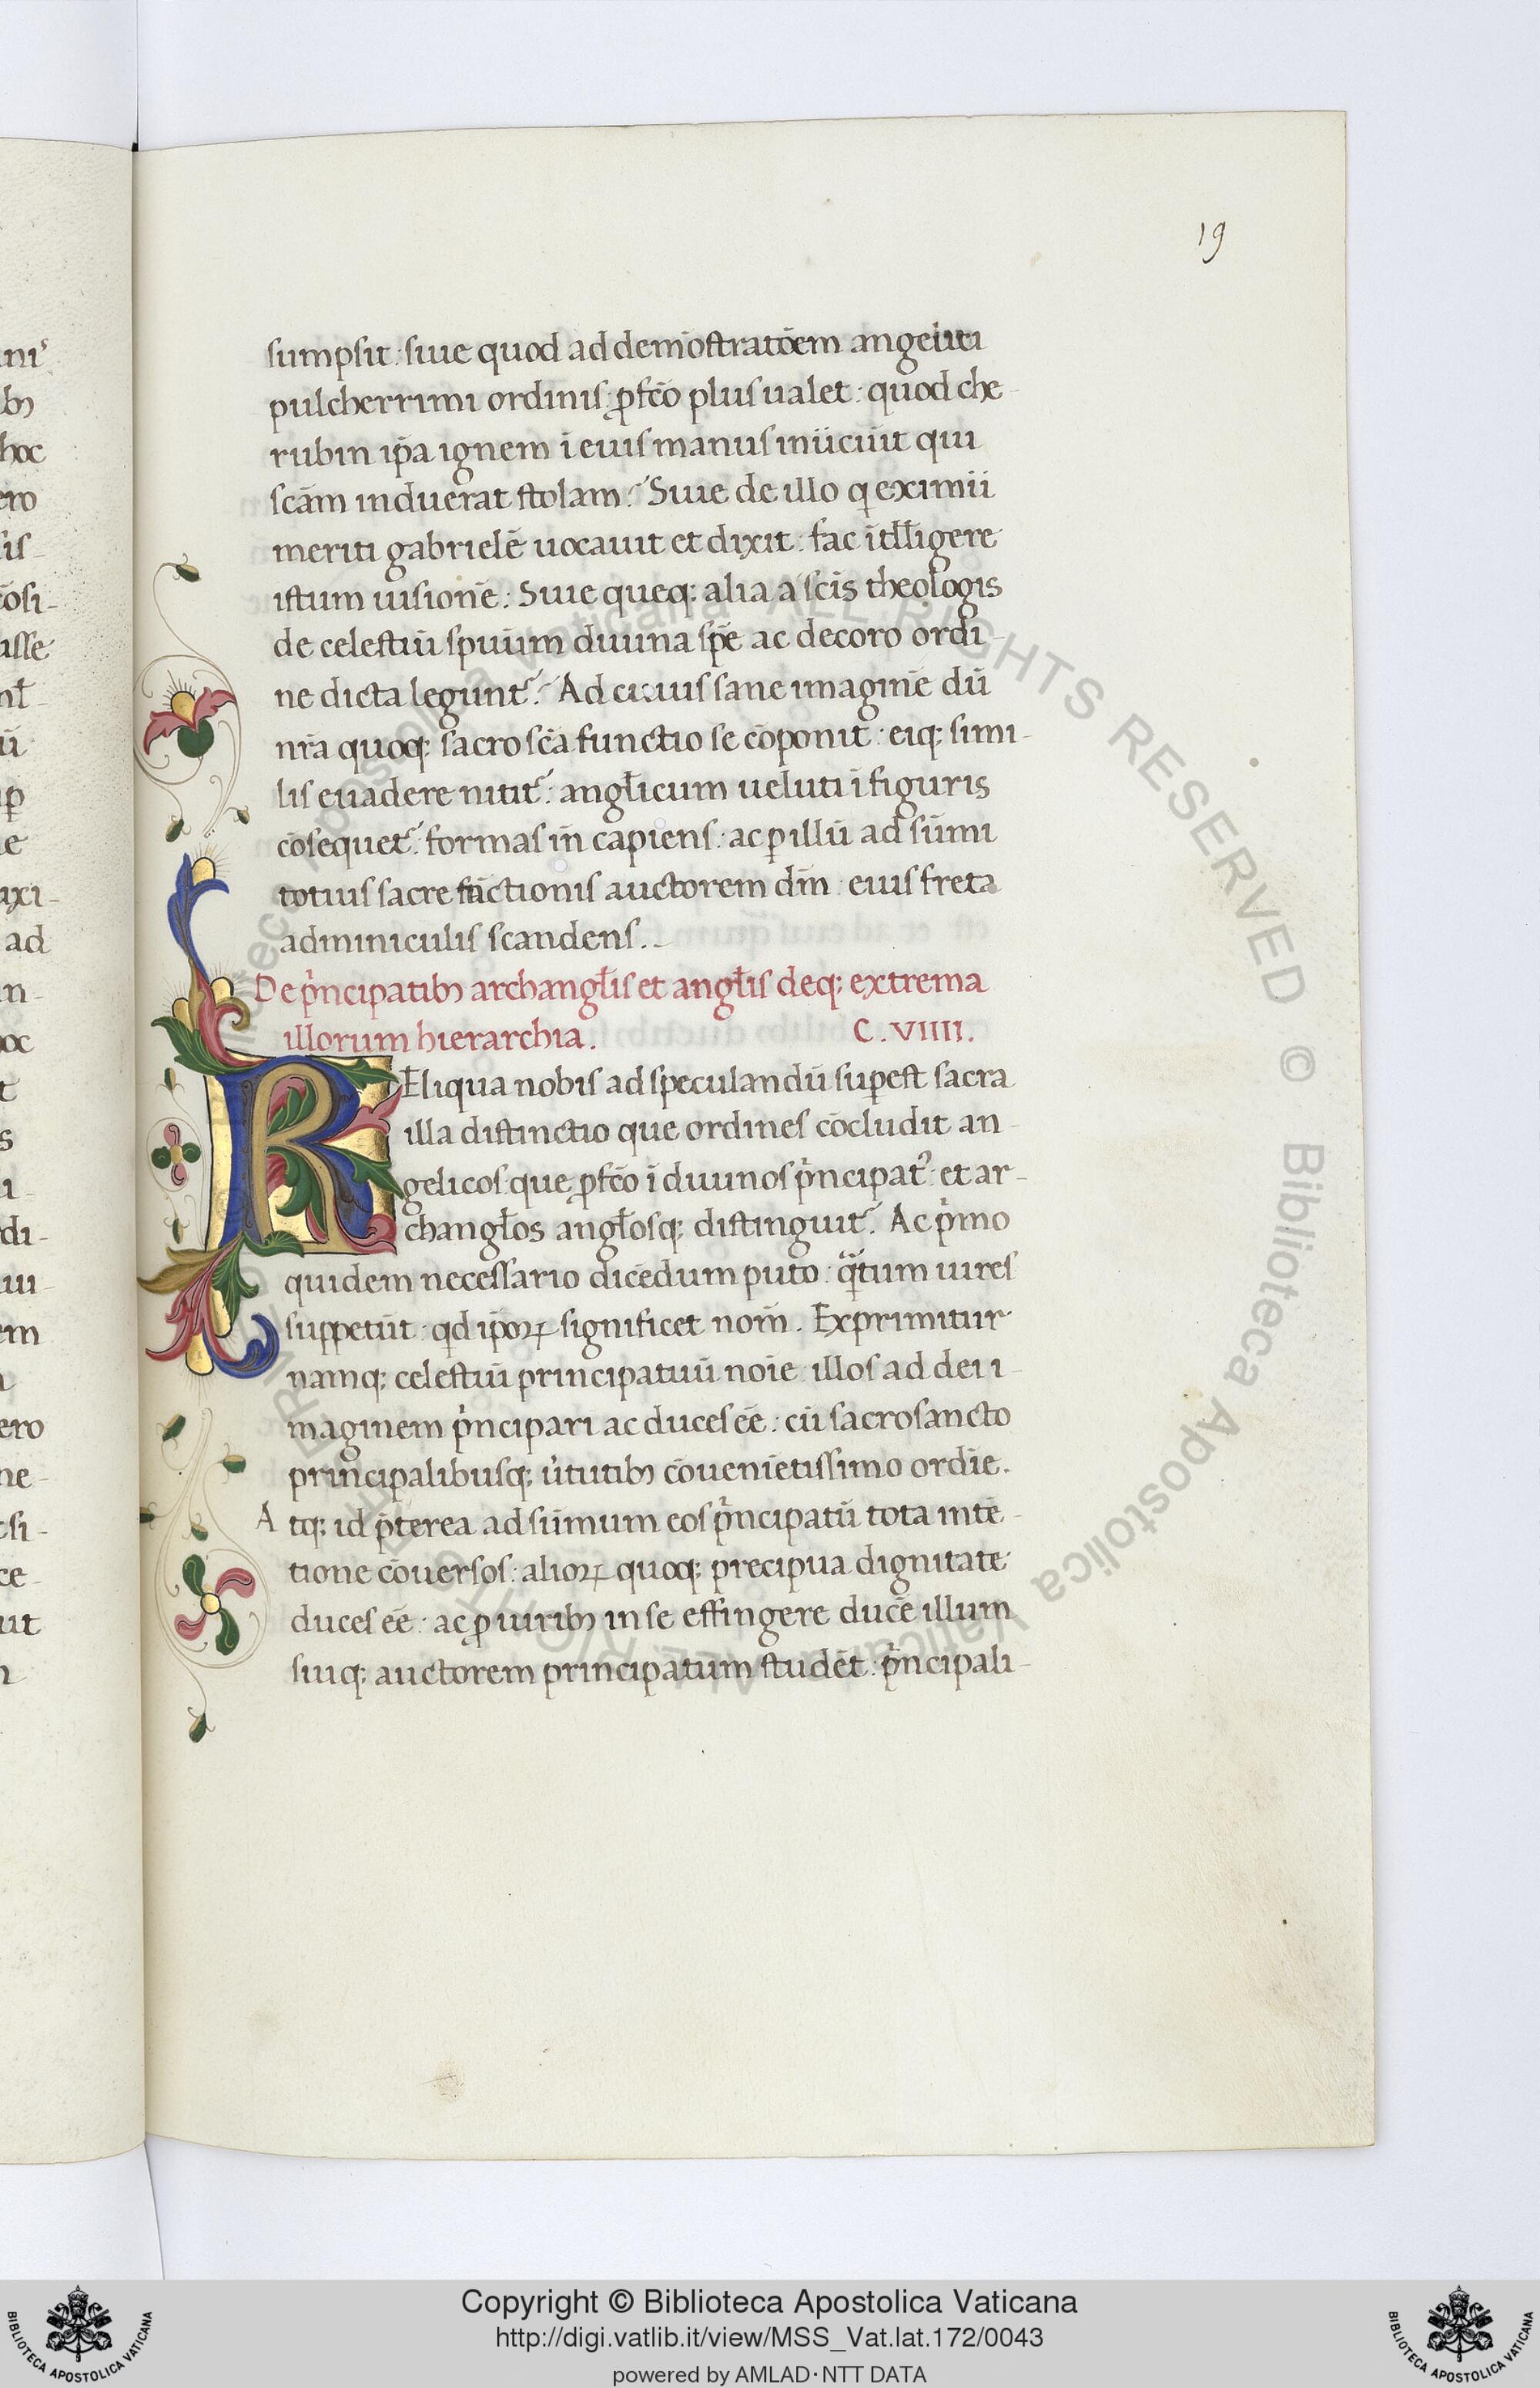 19
sumpsit : siue quod ad demōstratōem angelici
pulcherrimi ordinis ꝓfcō plus ualet : quod che-
rubin ip̄a ignem ī eius manus iniiciūt qui
scām induerat stolam : Siue de illo q eximii
meriti gabrielē uocauit et dixit : fac ītell̄igere
istum uisionē : Siue queq; alia a scīs theologis
de celestiū spūum diuina spē ac decoro ordi-
ne dicta legunt᷑ : Ad cuius sane imaginē dū
nr̄a quoq; sacro scā functio se cōponit : eiq; simi-
lis euadere nitit᷑ : angl̄icum ueluti ī figuris
cōsequet᷑ formas īn capiens : ac ꝑ illū ad sūmi
totius sacre fūctionis auctorem dm̄ : eius freta
adminiculis scandens .
De pⁱncipatibꝫ archangl̄is et angl̄is deq; extrema
illorum hierarchia . C . VIIII .
REliqua nobis ad speculandū suꝑest sacra
illa distinctio que ordines cōcludit an-
gelicos : que ꝓfcō ī diuinos pⁱncipat᷒ : et ar-
changl̄os angl̄osq; distinguit᷑ . Ac pⁱmo
quidem necessario dicēdum puto : qᵃ̄tum uires
suppetūt : qd ip̄oꝝ significet nom̄ . Exprimitur
namq; celestiū principatuū noīe illos ad dei i-
maginem pⁱncipari ac duces eē : cū sacrosancto
principalibusq; uⁱtutibꝫ cōueniētissimo ordīe .
Atq; id p̄terea ad sūmum eos pⁱncipatū tota intē-
tione cōuersos : alioꝝ quoq; precipua dignitate
duces eē : ac ꝓ uiribꝫ in se effingere ducē illum
suiq; auctorem principatum studēt : pⁱncipali-
Copyright © Biblioteca Apostolica Vaticana
http://digi.vatlib.it/view/MSS_Vat.lat.172/0043
powered by AMLAD·NTT DATA